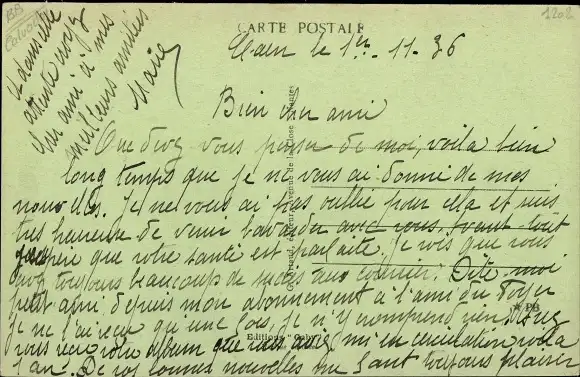 BB
Calvados
1202
CARTE POSTALE
Caen le 1er 11-36
Bien cher ami
Que devez vous penser de moi, voila bien
longtemps que je ne vous ai donné de mes
nouvelles. Je ne vous ai pas oublié pour cela et suis
très heureuse de venir bavarder avec vous, avant tout
j'espère que votre santé est parfaite, je vois que vous
avez toujours beaucoup de succès au courrier. Dite-moi
petit ami depuis mon abonnement à l'ami du foyer
je ne l'ai reçu qu'une fois, je n'y comprend rien. Avez
vous reçu votre album que vous avez mi en circulation voila
1 an. De vos bonnes nouvelles me font toujours plaisir
Editions "
BB
cher ami à mes
meilleurs amitiés
Marie